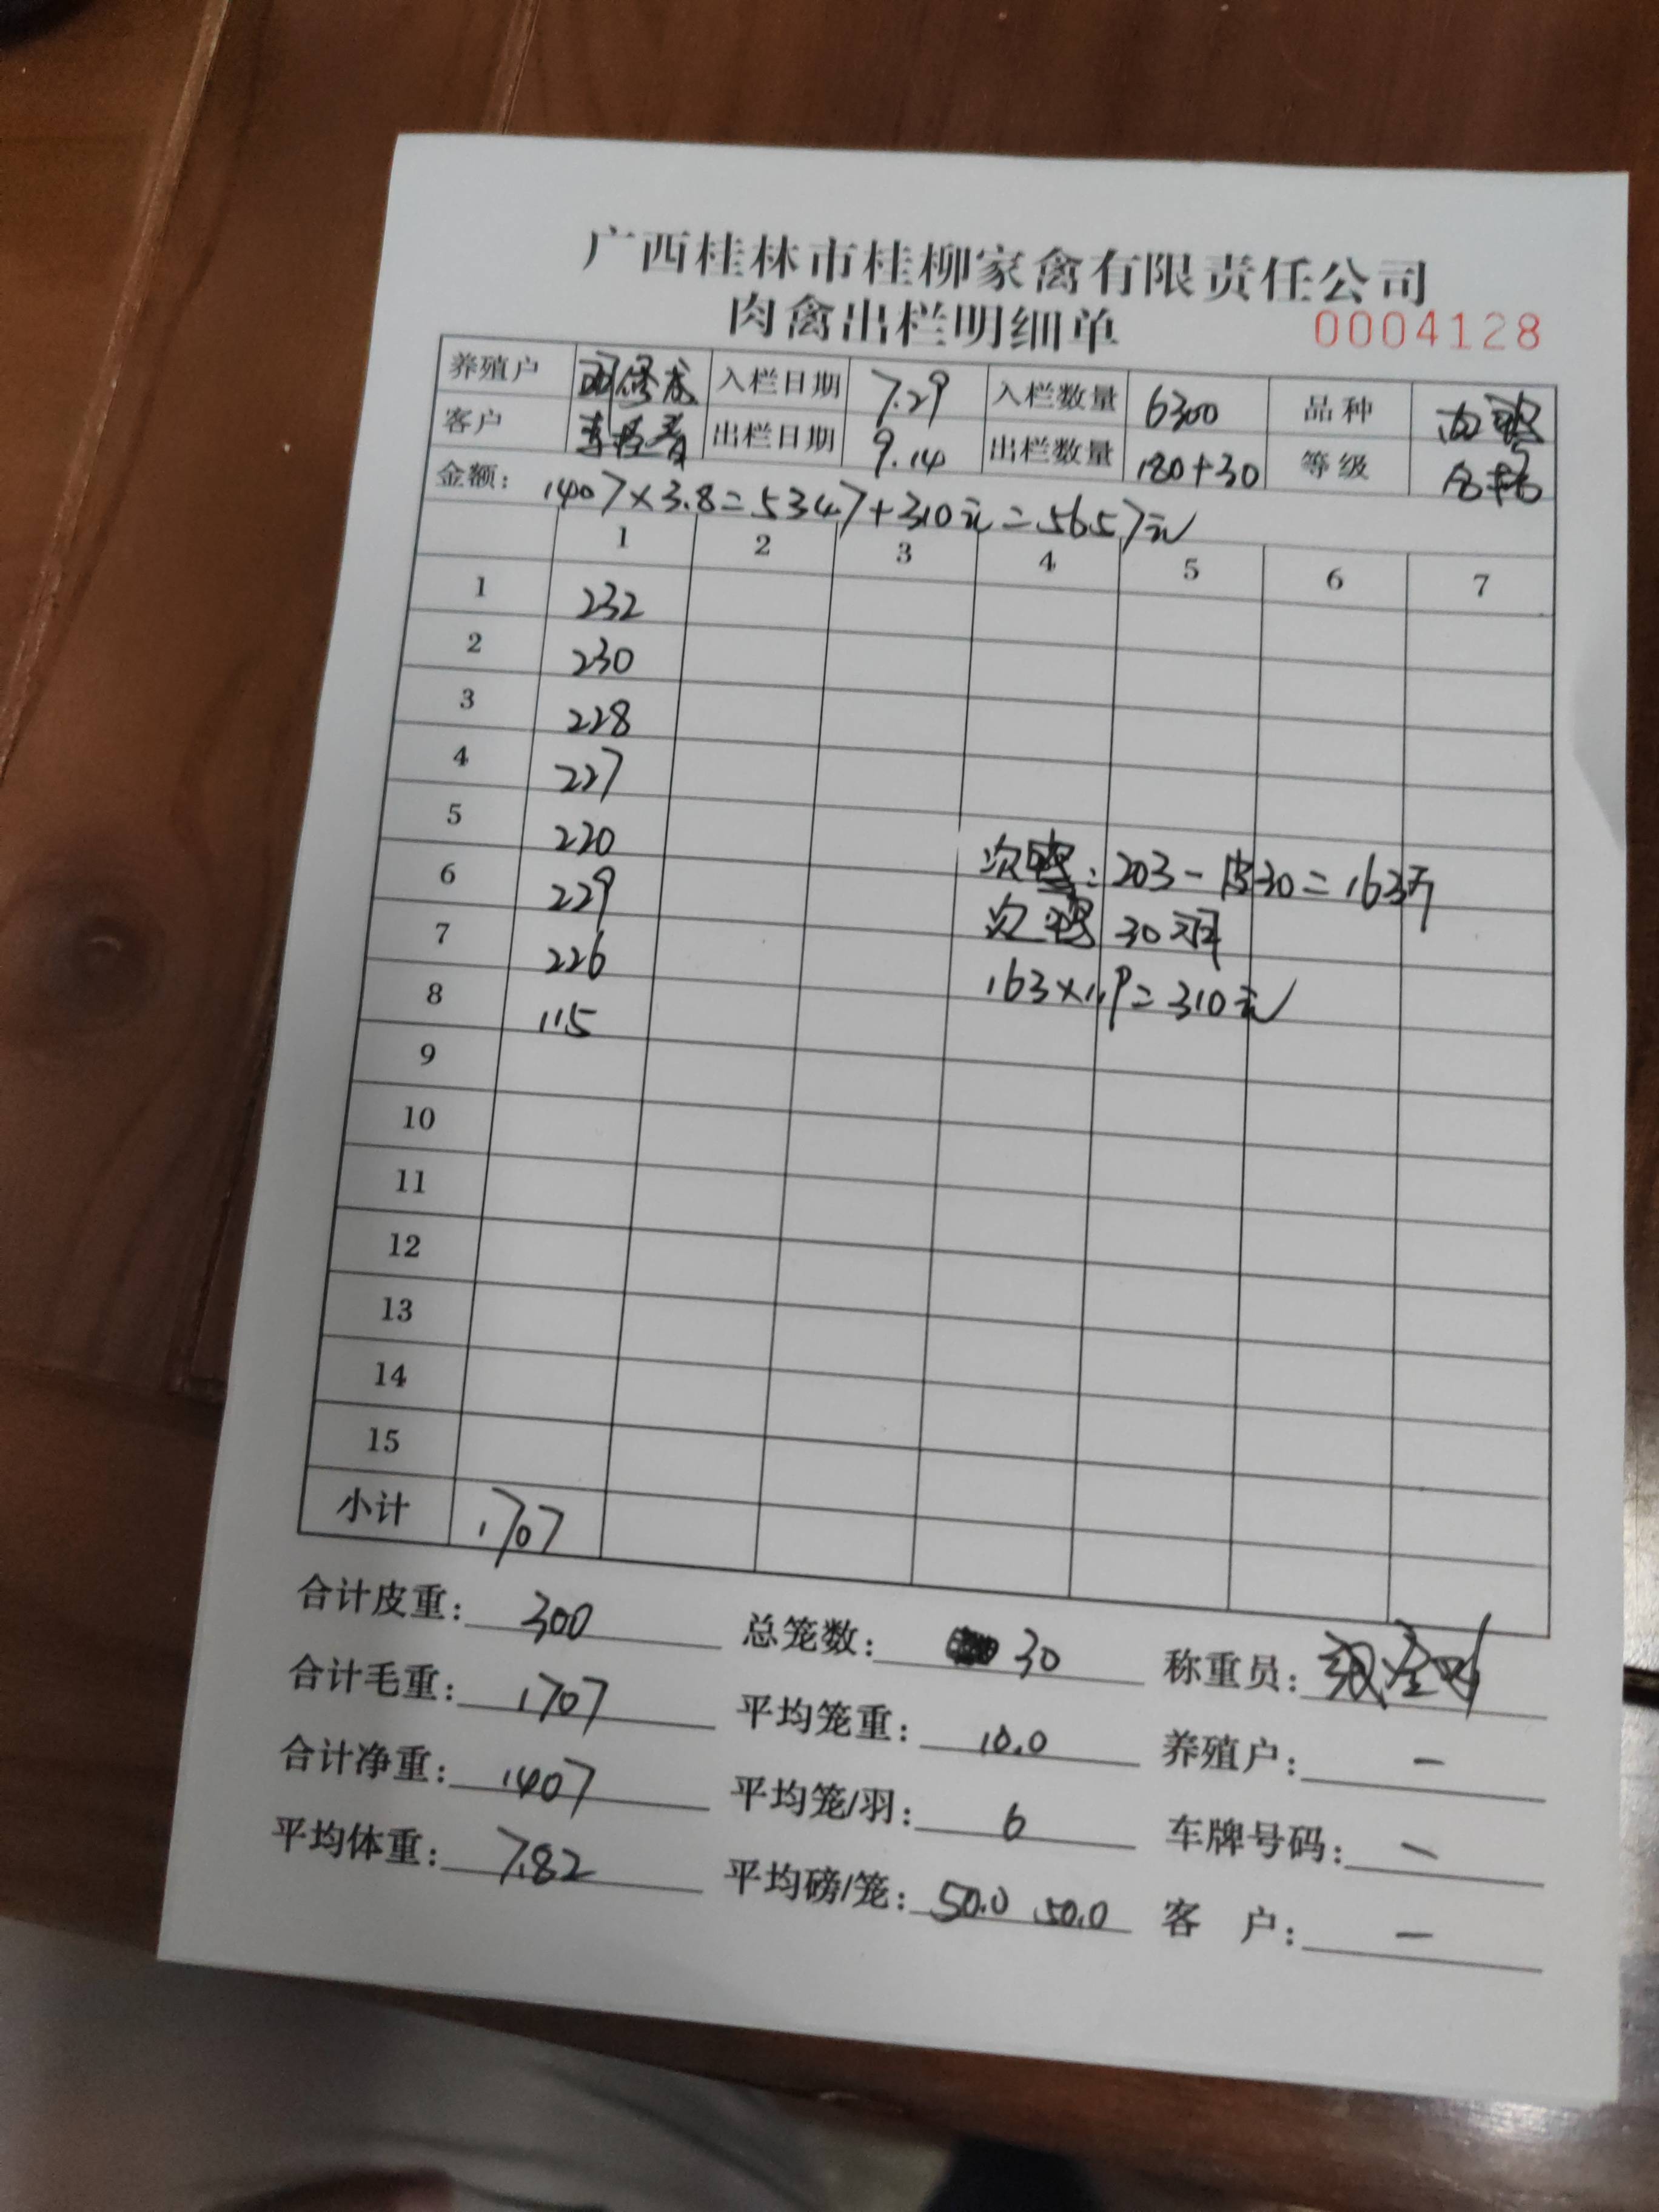 广西桂林市桂柳家禽有限责任公司
肉禽出栏明细单 0004128
养殖户 入栏日期 7.29 入栏数量 6300 品种 肉鸭
客户 出栏日期 9.14 出栏数量 180+30 等级 合格
金额: 1407×3.8=5347+310元=5657元
1 2 3 4 5 6 7
1 232
2 230
3 228
4 227
5 220
6 229
7 226
8 115
次鸭: 203-皮30=163斤
次鸭 30羽
163×1.9=310元
9
10
11
12
13
14
15
小计 1707
合计皮重: 300 总笼数: 30 称重员:
合计毛重: 1707 平均笼重: 10.0 养殖户: 一
合计净重: 1407 平均笼/羽: 6 车牌号码: 一
平均体重: 7.82 平均磅/笼: 50.0 50.0 客 户: 一